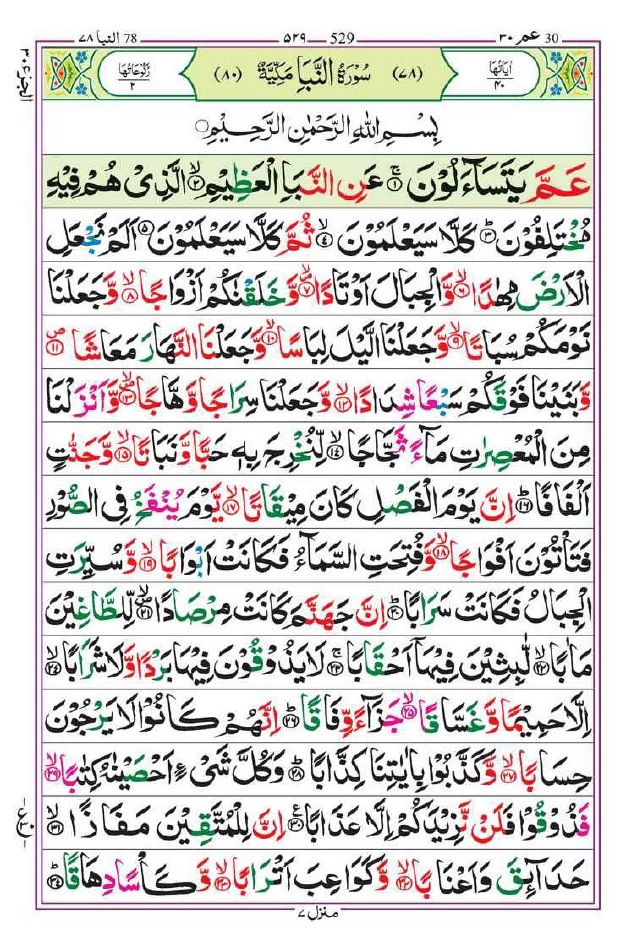 ٧٨ النبا 78
٥٢٩ 529
عم ٣٠ 30
الجزء ٣٠
اٰيَاتُهَا ٤٠
(٧٨) سُوْرَةُ النَّبَاِ مَكِّيَّةٌ (٨٠)
رُكُوْعَاتُهَا ٢
بِسْمِ اللّٰهِ الرَّحْمٰنِ الرَّحِيْمِ
عَمَّ يَتَسَآءَلُوْنَ ۚ﴿١﴾ عَنِ النَّبَاِ الْعَظِيْمِ ۙ﴿٢﴾ الَّذِىْ هُمْ فِيْهِ
مُخْتَلِفُوْنَ ؕ﴿٣﴾ كَلَّا سَيَعْلَمُوْنَ ۙ﴿٤﴾ ثُمَّ كَلَّا سَيَعْلَمُوْنَ ﴿٥﴾ اَلَمْ نَجْعَلِ
الْاَرْضَ مِهٰدًا ۙ﴿٦﴾ وَّالْجِبَالَ اَوْتَادًا ۙ﴿٧﴾ وَّخَلَقْنٰكُمْ اَزْوَاجًا ۙ﴿٨﴾ وَّجَعَلْنَا
نَوْمَكُمْ سُبَاتًا ۙ﴿٩﴾ وَّجَعَلْنَا الَّيْلَ لِبَاسًا ۙ﴿١٠﴾ وَّجَعَلْنَا النَّهَارَ مَعَاشًا ۪﴿١١﴾
وَّبَنَيْنَا فَوْقَكُمْ سَبْعًا شِدَادًا ۙ﴿١٢﴾ وَّجَعَلْنَا سِرَاجًا وَّهَّاجًا ۪ۙ﴿١٣﴾ وَّاَنْزَلْنَا
مِنَ الْمُعْصِرٰتِ مَآءً ثَجَّاجًا ۙ﴿١٤﴾ لِّنُخْرِجَ بِهٖ حَبًّا وَّنَبَاتًا ۙ﴿١٥﴾ وَّجَنّٰتٍ
اَلْفَافًا ؕ﴿١٦﴾ اِنَّ يَوْمَ الْفَصْلِ كَانَ مِيْقَاتًا ۙ﴿١٧﴾ يَّوْمَ يُنْفَخُ فِى الصُّوْرِ
فَتَاْتُوْنَ اَفْوَاجًا ۙ﴿١٨﴾ وَّفُتِحَتِ السَّمَآءُ فَكَانَتْ اَبْوَابًا ۙ﴿١٩﴾ وَّسُيِّرَتِ
الْجِبَالُ فَكَانَتْ سَرَابًا ؕ﴿٢٠﴾ اِنَّ جَهَنَّمَ كَانَتْ مِرْصَادًا ۪ۙ﴿٢١﴾ لِّلطَّاغِيْنَ
مَاٰبًا ۙ﴿٢٢﴾ لّٰبِثِيْنَ فِيْهَآ اَحْقَابًا ۚ﴿٢٣﴾ لَا يَذُوْقُوْنَ فِيْهَا بَرْدًا وَّلَا شَرَابًا ۙ﴿٢٤﴾
اِلَّا حَمِيْمًا وَّغَسَّاقًا ۙ﴿٢٥﴾ جَزَآءً وِّفَاقًا ؕ﴿٢٦﴾ اِنَّهُمْ كَانُوْا لَا يَرْجُوْنَ
حِسَابًا ۙ﴿٢٧﴾ وَّكَذَّبُوْا بِاٰيٰتِنَا كِذَّابًا ؕ﴿٢٨﴾ وَكُلَّ شَىْءٍ اَحْصَيْنٰهُ كِتٰبًا ۙ﴿٢٩﴾
فَذُوْقُوْا فَلَنْ نَّزِيْدَكُمْ اِلَّا عَذَابًا ﴿٣٠﴾ اِنَّ لِلْمُتَّقِيْنَ مَفَازًا ۙ﴿٣١﴾
حَدَآئِقَ وَاَعْنَابًا ۙ﴿٣٢﴾ وَّكَوَاعِبَ اَتْرَابًا ۙ﴿٣٣﴾ وَّكَاْسًا دِهَاقًا ؕ﴿٣٤﴾
منزل ٧